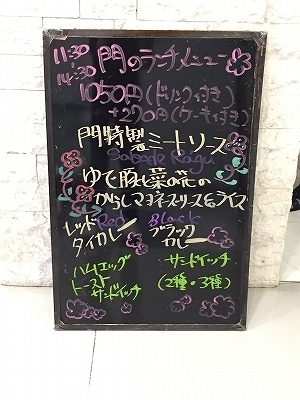 11:30
14:30
門のランチメニュー
1050円(ドリンク付き)
+270円(ケーキ付き)
門特製ミートソース
ゆで豚と菜の花の
からしマヨネーズソース&ライス
レッド Red
タイカレー
Black
ブラック
カレー
ハムエッグ
トースト
サンドイッチ
サンドイッチ
(2種・3種)